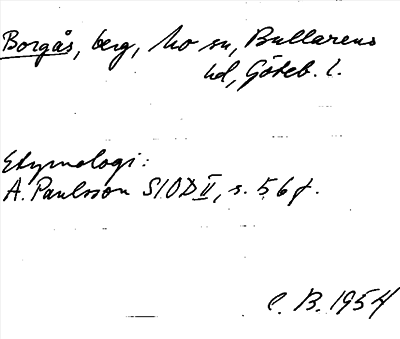 Borgås, berg, Mo sn, Bullarens
hd, Göteb. l.
Etymologi:
A. Paulsson SIOD II, s. 56 f.
C. B. 1954